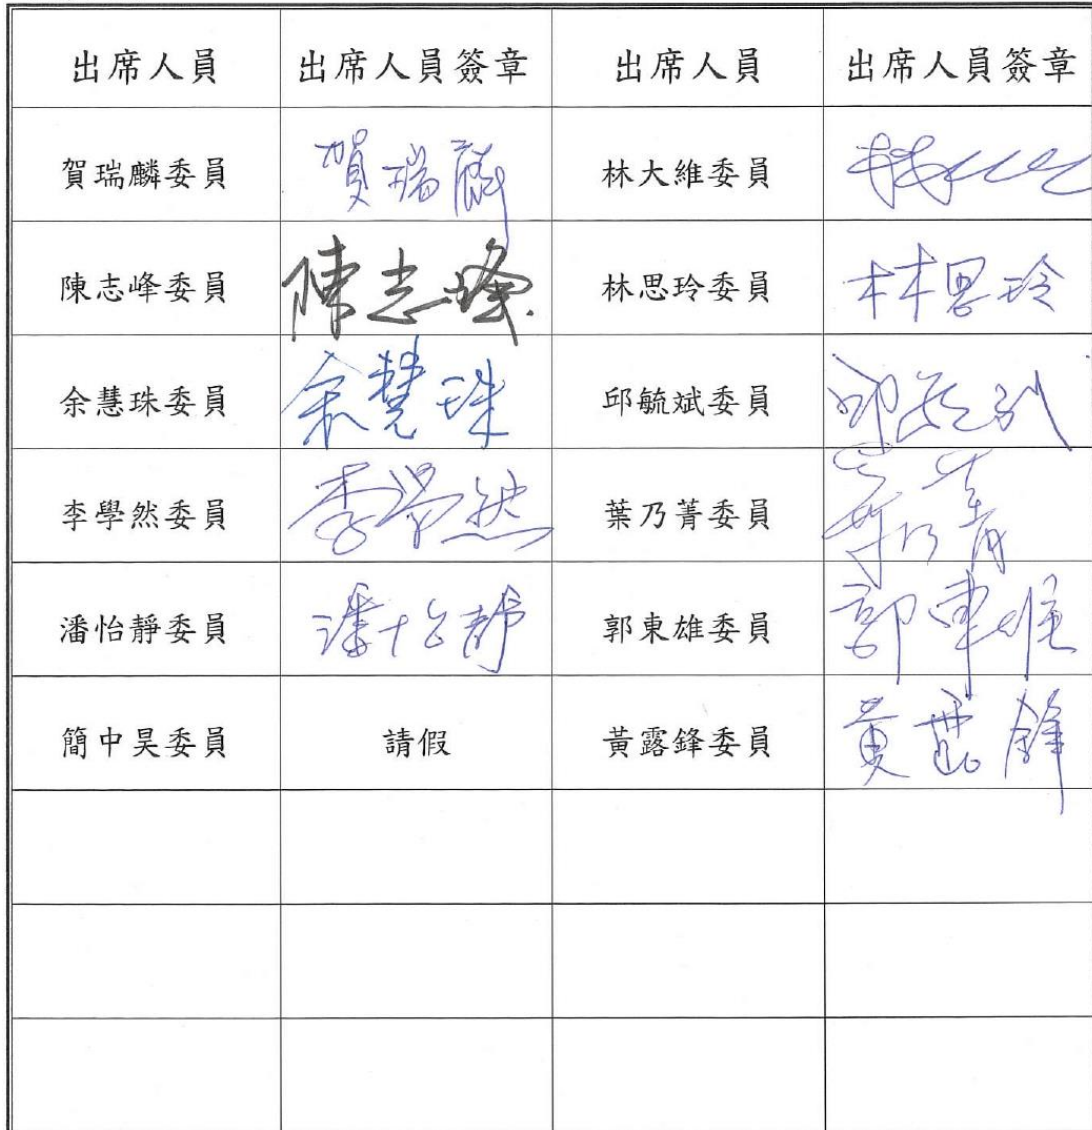 出席人員 出席人員簽章 出席人員 出席人員簽章
賀瑞麟委員 賀瑞麟 林大維委員
陳志峰委員 陳志峰 林思玲委員 林思玲
余慧珠委員 余慧珠 邱毓斌委員 邱毓斌
李學然委員 李學然 葉乃菁委員 葉乃菁
潘怡靜委員 潘怡靜 郭東雄委員 郭東雄
簡中昊委員 請假 黃露鋒委員 黃露鋒